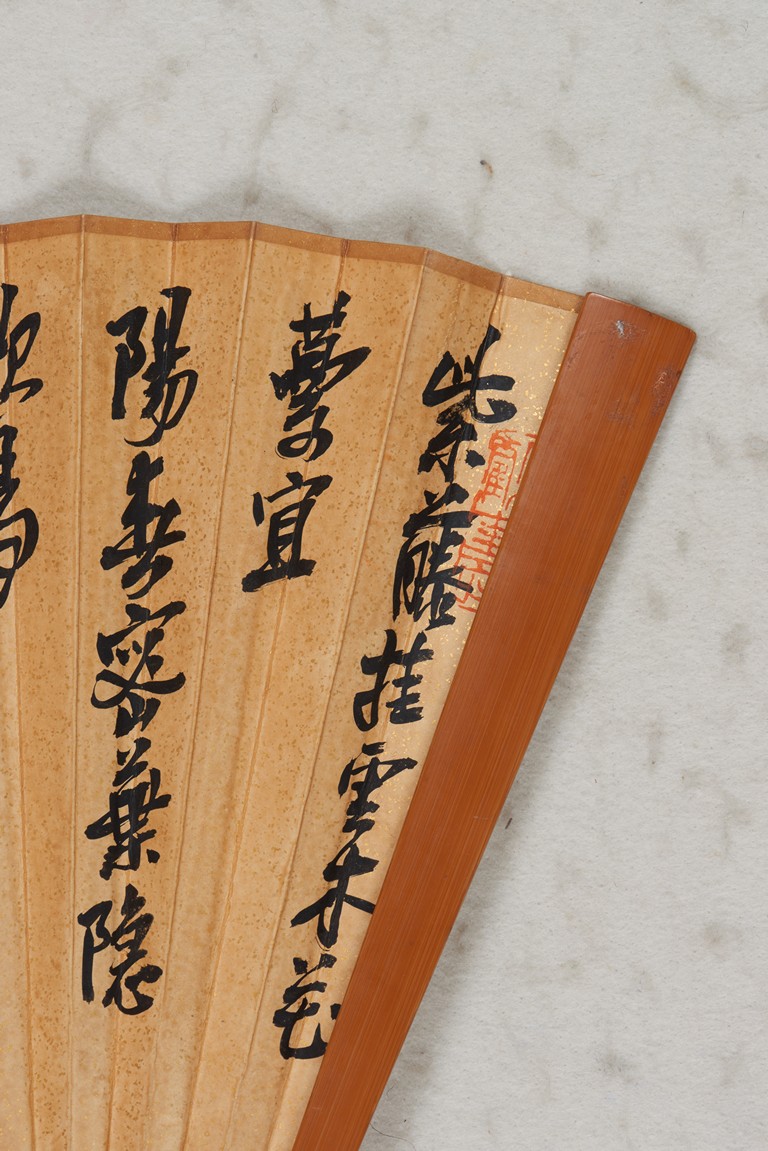 紫藤挂雲木花
蔓宜
陽春密葉隱